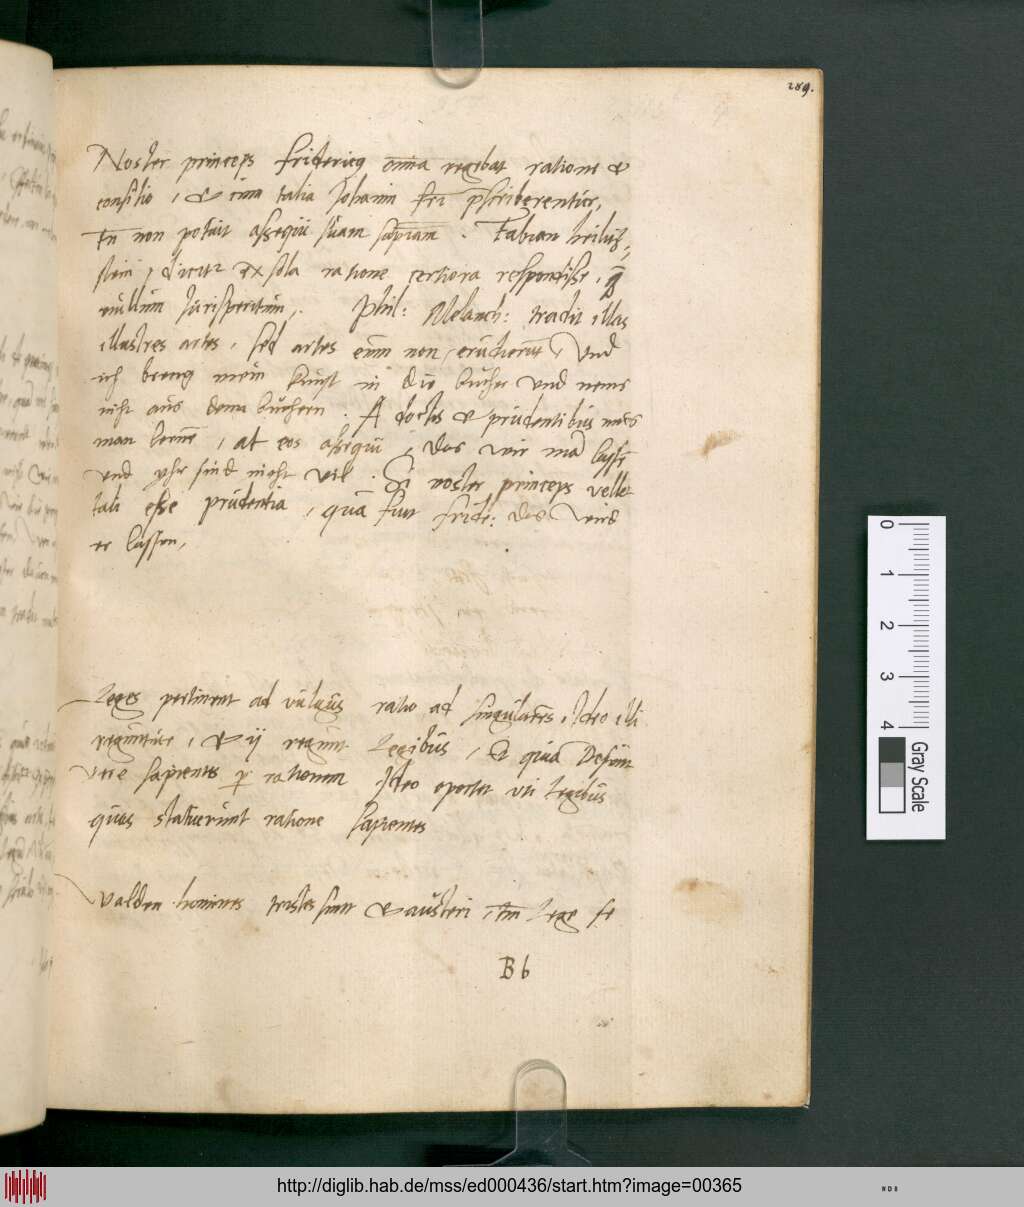 289.
Noster princeps Fridericus omnia regebat ratione et
consilio, et cum talia Johanni fri pscriberentur,
Tn non potuit assequi suam sapiam. Fabian heilitz,
stein, dicitur ex sola ratione certiora respondisse, q̄
nullum Jurisperitum,. Phil: Melanch: tradit illas
illustres artes, sed artes eum non erudierunt, Und
ich breng mein kunst in die bucher und nems
nicht aus denn buchern. A doctis et prudentibus mus
man lerne, at eos assequi, das wir ma lassen
und yhr sind nicht vil. Si noster princeps vellet
tali esse prudentia, qua fuit Fride: das wird
er lassen,
Leges pertinent ad vulgus ratio ad singulares, Ideo illi
reguntur, et ij regunt Legibus, Et quia Desunt
vere sapientes p rationem Ideo oportet uti Legibus
quas statuerunt ratione sapientes
Valden homines tristes sunt et austeri, tm Lege se
Bb
0
1
2
3
4
Gray Scale
http://diglib.hab.de/mss/ed000436/start.htm?image=00365